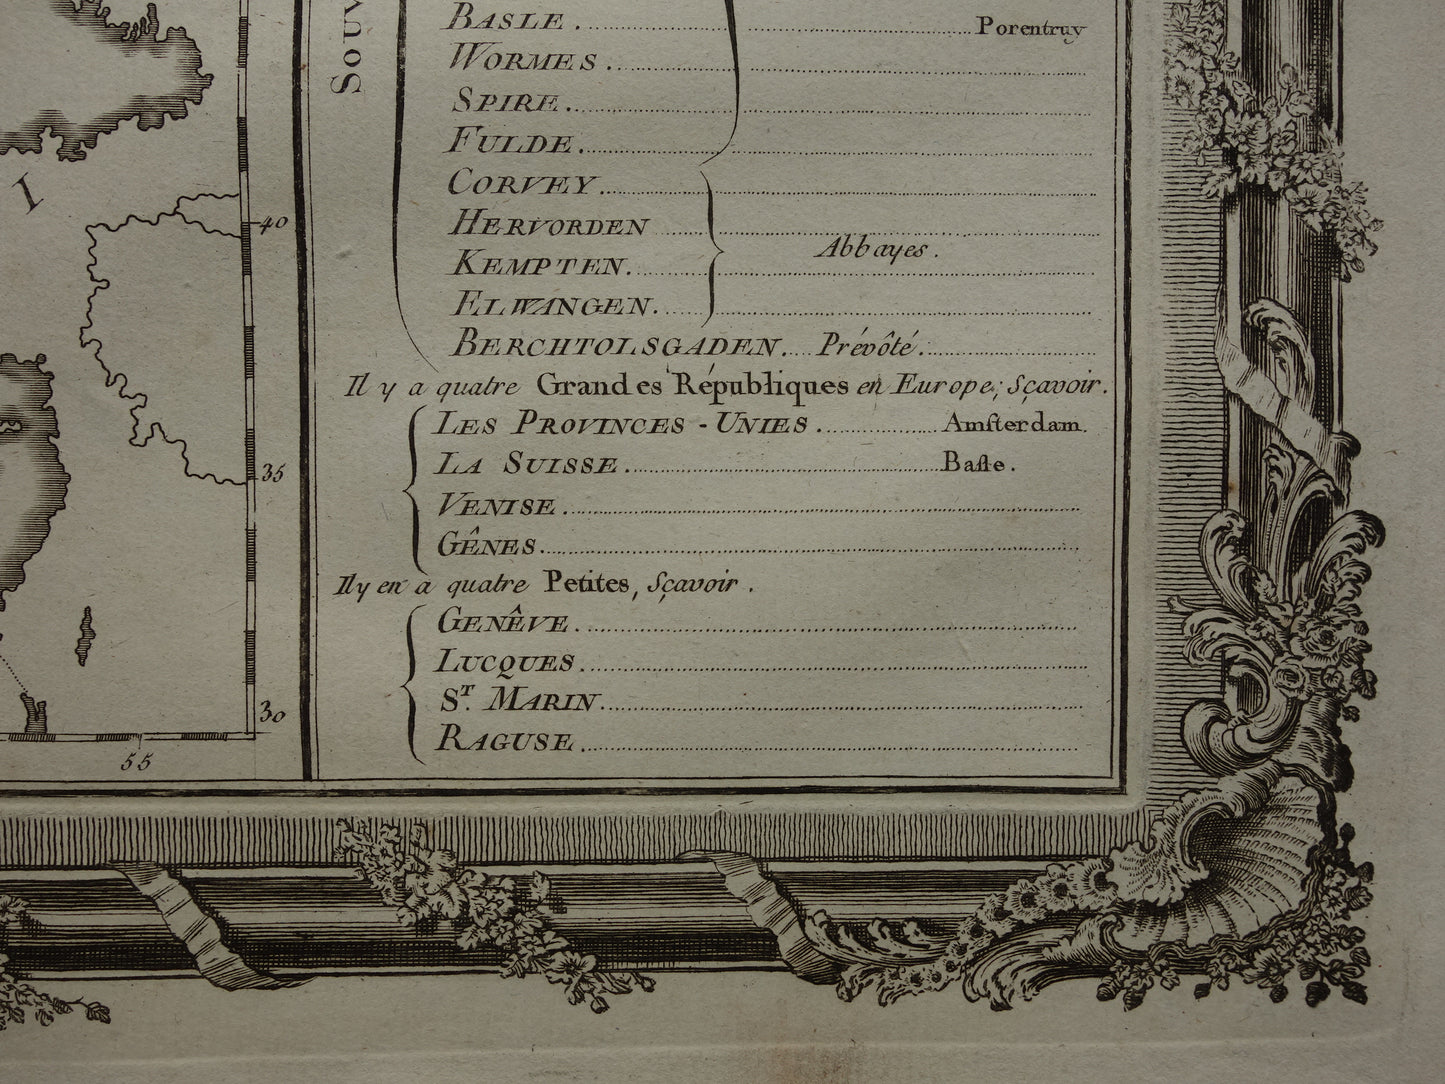 SOUV
BASLE . Porentruy
WORMES .
SPIRE .
FULDE .
CORVEY .
HERVORDEN
KEMPTEN . Abbayes .
ELWANGEN .
BERCHTOLSGADEN . Prévôté .
Il y a quatre Grandes Républiques en Europe ; Sçavoir .
LES PROVINCES - UNIES . Amsterdam .
LA SUISSE . Basle .
VENISE .
GÊNES .
Il y en a quatre Petites , Sçavoir .
GENÊVE .
LUCQUES .
ST. MARIN .
RAGUSE .
I
40
35
30
55